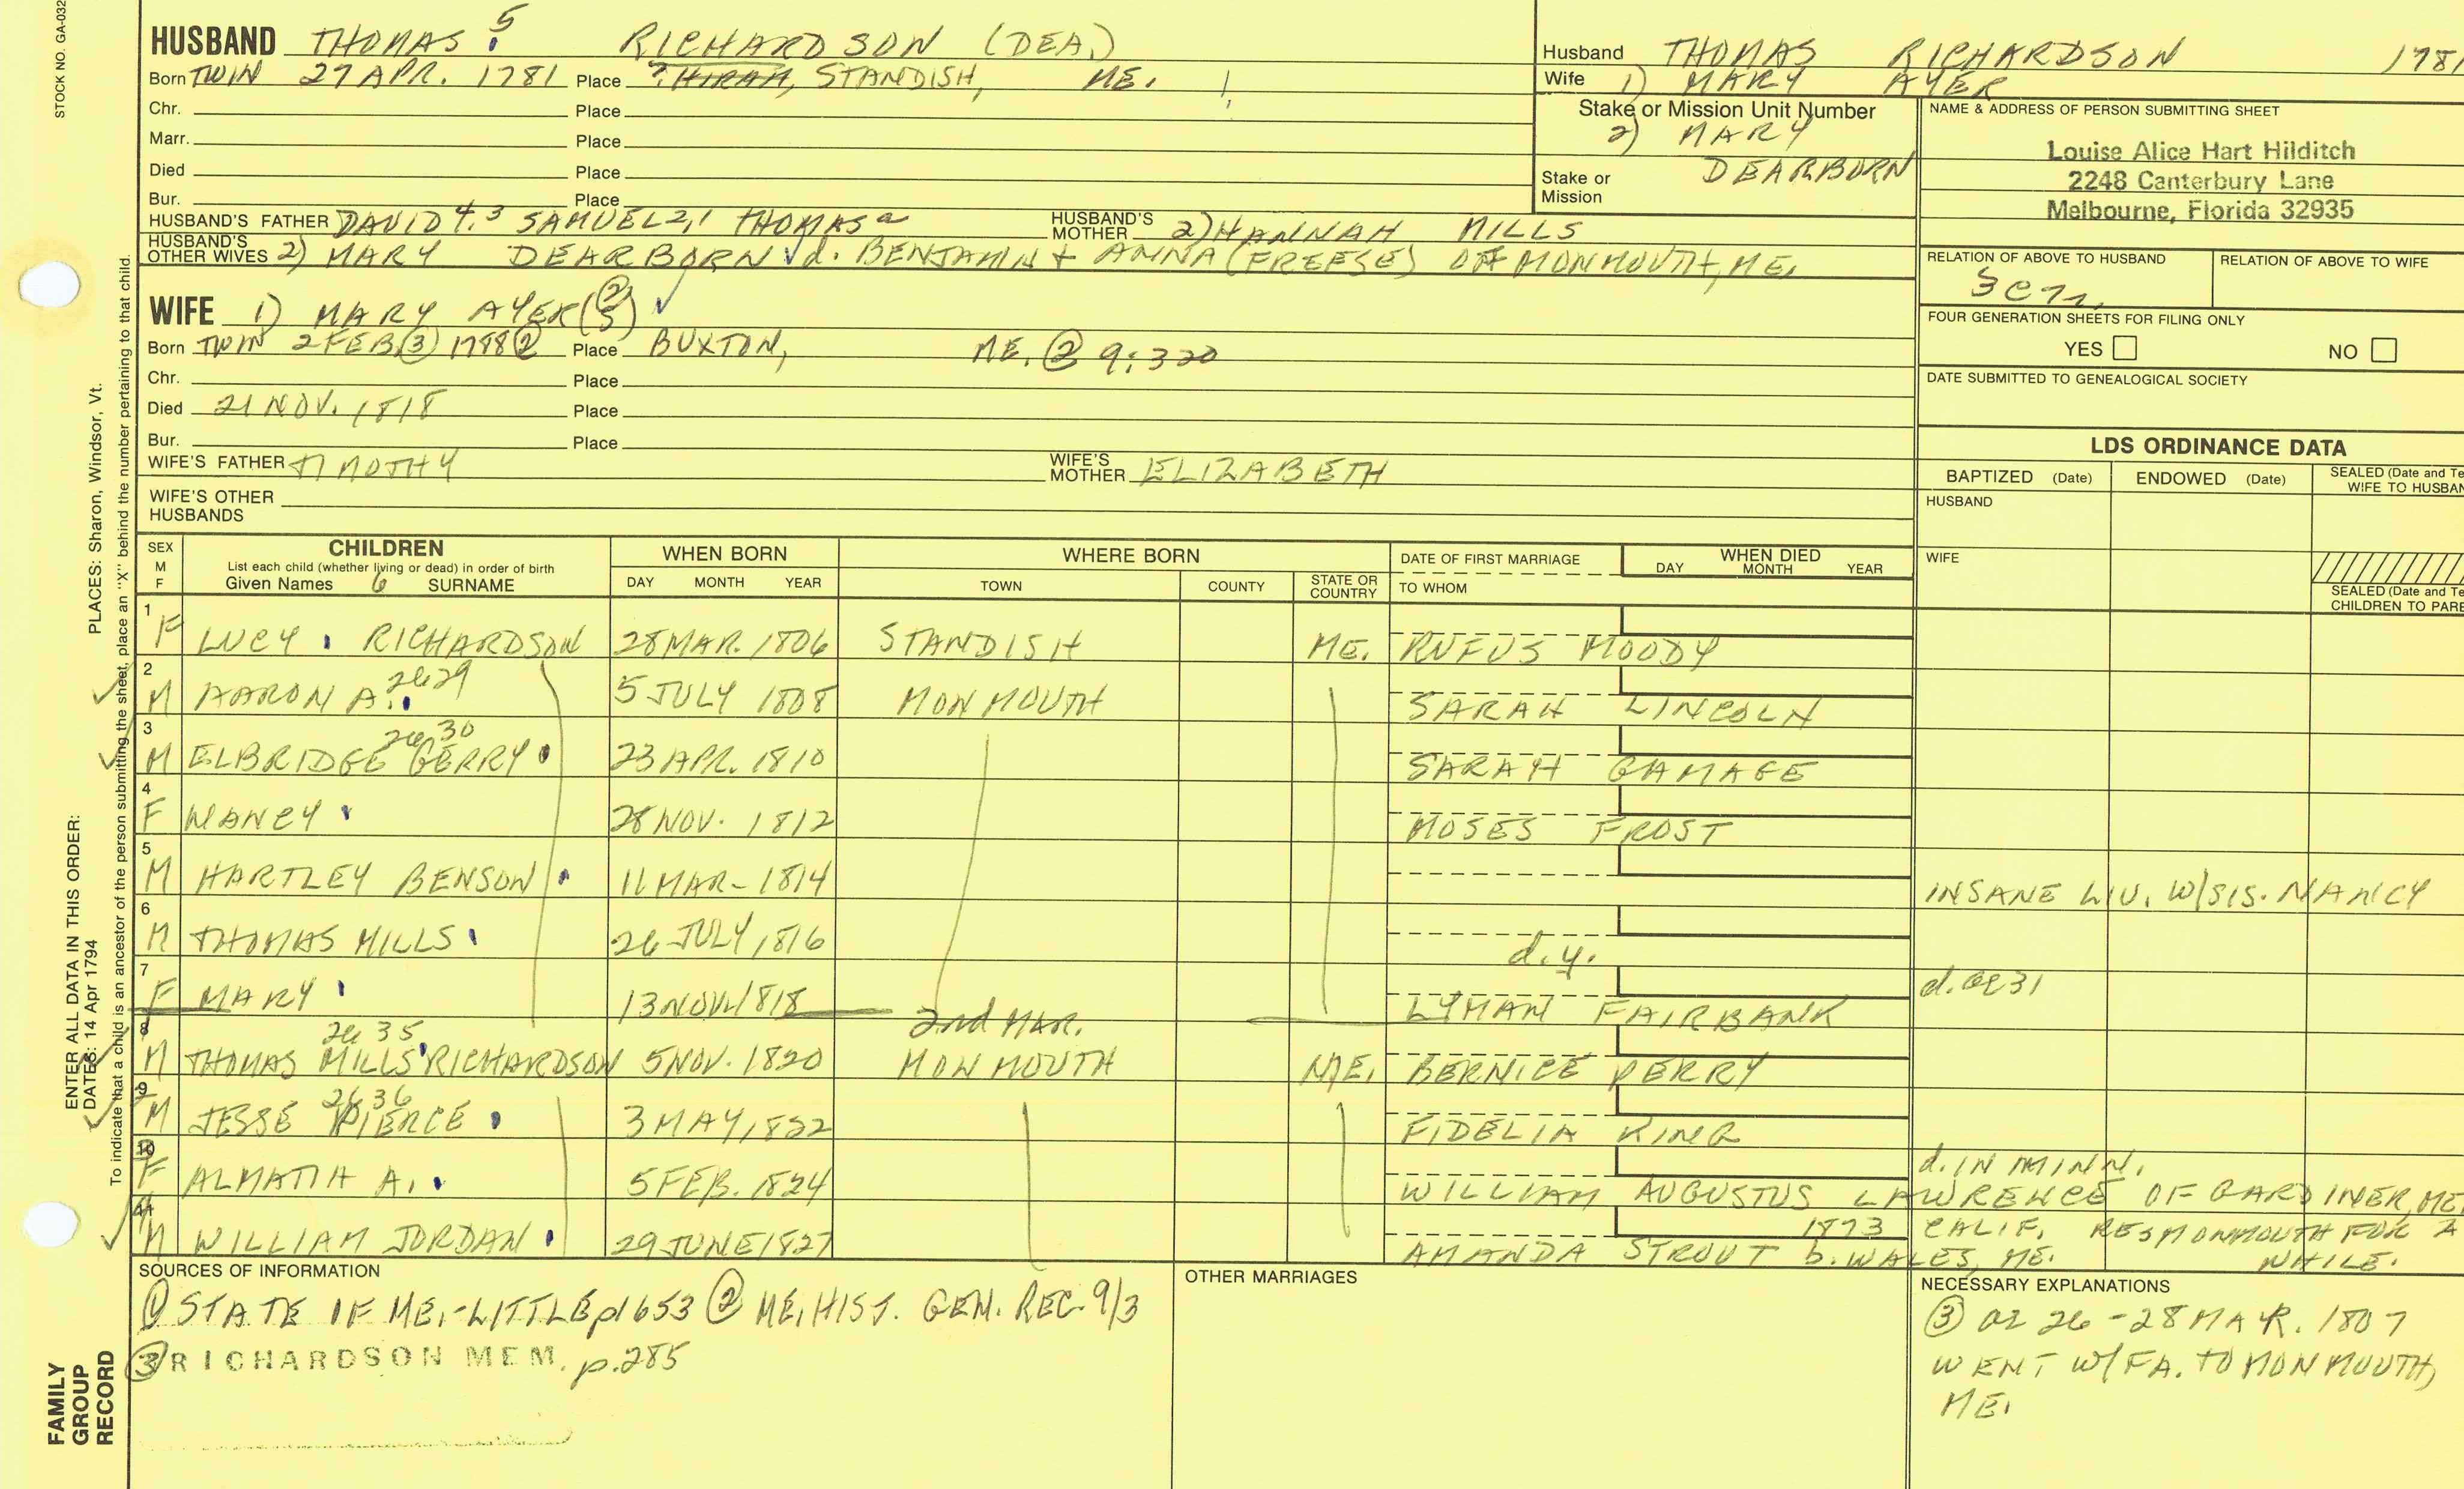 STOCK NO. GA-032
HUSBAND THOMAS 5 RICHARDSON (DEA.)
Born TWIN 27 APR. 1781 Place ? HIRAM, STANDISH, ME.
Chr. Place
Marr. Place
Died Place
Bur. Place
HUSBAND'S FATHER DAVID 4, 3 SAMUEL 2,1 THOMAS a HUSBAND'S MOTHER 2) HANNAH MILLS
HUSBAND'S OTHER WIVES 2) MARY DEARBORN d. BENJAMIN + ANNA (FREESE) OF MONMOUTH, ME.
WIFE 1) MARY AYER
Born TWIN 2 FEB. ③ 1788 ② Place BUXTON, ME. ② 9:320
Chr. Place
Died 21 NOV. 1818 Place
Bur. Place
WIFE'S FATHER TIMOTHY WIFE'S MOTHER ELIZABETH
WIFE'S OTHER HUSBANDS
Husband THOMAS RICHARDSON 1781
Wife 1) MARY AYER
Stake or Mission Unit Number
2) MARY
DEARBORN
Stake or Mission
NAME & ADDRESS OF PERSON SUBMITTING SHEET
Louise Alice Hart Hilditch
2248 Canterbury Lane
Melbourne, Florida 32935
RELATION OF ABOVE TO HUSBAND RELATION OF ABOVE TO WIFE
FOUR GENERATION SHEETS FOR FILING ONLY
YES NO
DATE SUBMITTED TO GENEALOGICAL SOCIETY
LDS ORDINANCE DATA
BAPTIZED (Date) ENDOWED (Date) SEALED (Date and Te
WIFE TO HUSBAN
HUSBAND
WIFE
SEALED (Date and Te
CHILDREN TO PARE
SEX M F CHILDREN WHEN BORN WHERE BORN DATE OF FIRST MARRIAGE WHEN DIED
List each child (whether living or dead) in order of birth
Given Names 6 SURNAME DAY MONTH YEAR TOWN COUNTY STATE OR COUNTRY TO WHOM DAY MONTH YEAR
1 F LUCY RICHARDSON 28 MAR. 1806 STANDISH ME. RUFUS MOODY
2 M AARON A. 2629 5 JULY 1808 MONMOUTH SARAH LINCOLN
3 M ELBRIDGE GERRY 2630 23 APR. 1810 SARAH GAMAGE
4 F NANCY 28 NOV. 1812 MOSES FROST
5 M HARTLEY BENSON 11 MAR- 1814 INSANE LIV. W/SIS. NANCY
6 M THOMAS MILLS 26 JULY 1816 d.y.
7 F MARY 13 NOV. 1818 LYMAN FAIRBANK d. ae 31
2nd MAR.
8 M THOMAS MILLS RICHARDSON 2635 5 NOV. 1820 MONMOUTH ME. BERNICE PERRY
9 M JESSE PIERCE 2636 3 MAY 1822 FIDELIA KING
10 F ALMATIH A. 5 FEB. 1824 d. IN MINN.
WILLIAM AUGUSTUS LAWRENCE OF GARDINER, ME
M WILLIAM JORDAN 29 JUNE 1827 1873 CALIF. RES MONMOUTH FOR A
AMANDA STROUT b. WALES, ME. WHILE.
SOURCES OF INFORMATION
① STATE OF ME.-LITTLE p1653 ② ME. HIST. GEN. REC. 9/3
③ RICHARDSON MEM. p.285
OTHER MARRIAGES
NECESSARY EXPLANATIONS
③ or 26-28 MAR. 1807
WENT W/FA. TO MONMOUTH,
ME.
PLACES: Sharon, Windsor, Vt.
To indicate that a child is an ancestor of the person submitting the sheet, place an "X" behind the number pertaining to that child.
ENTER ALL DATA IN THIS ORDER:
DATES: 14 Apr 1794
FAMILY
GROUP
RECORD